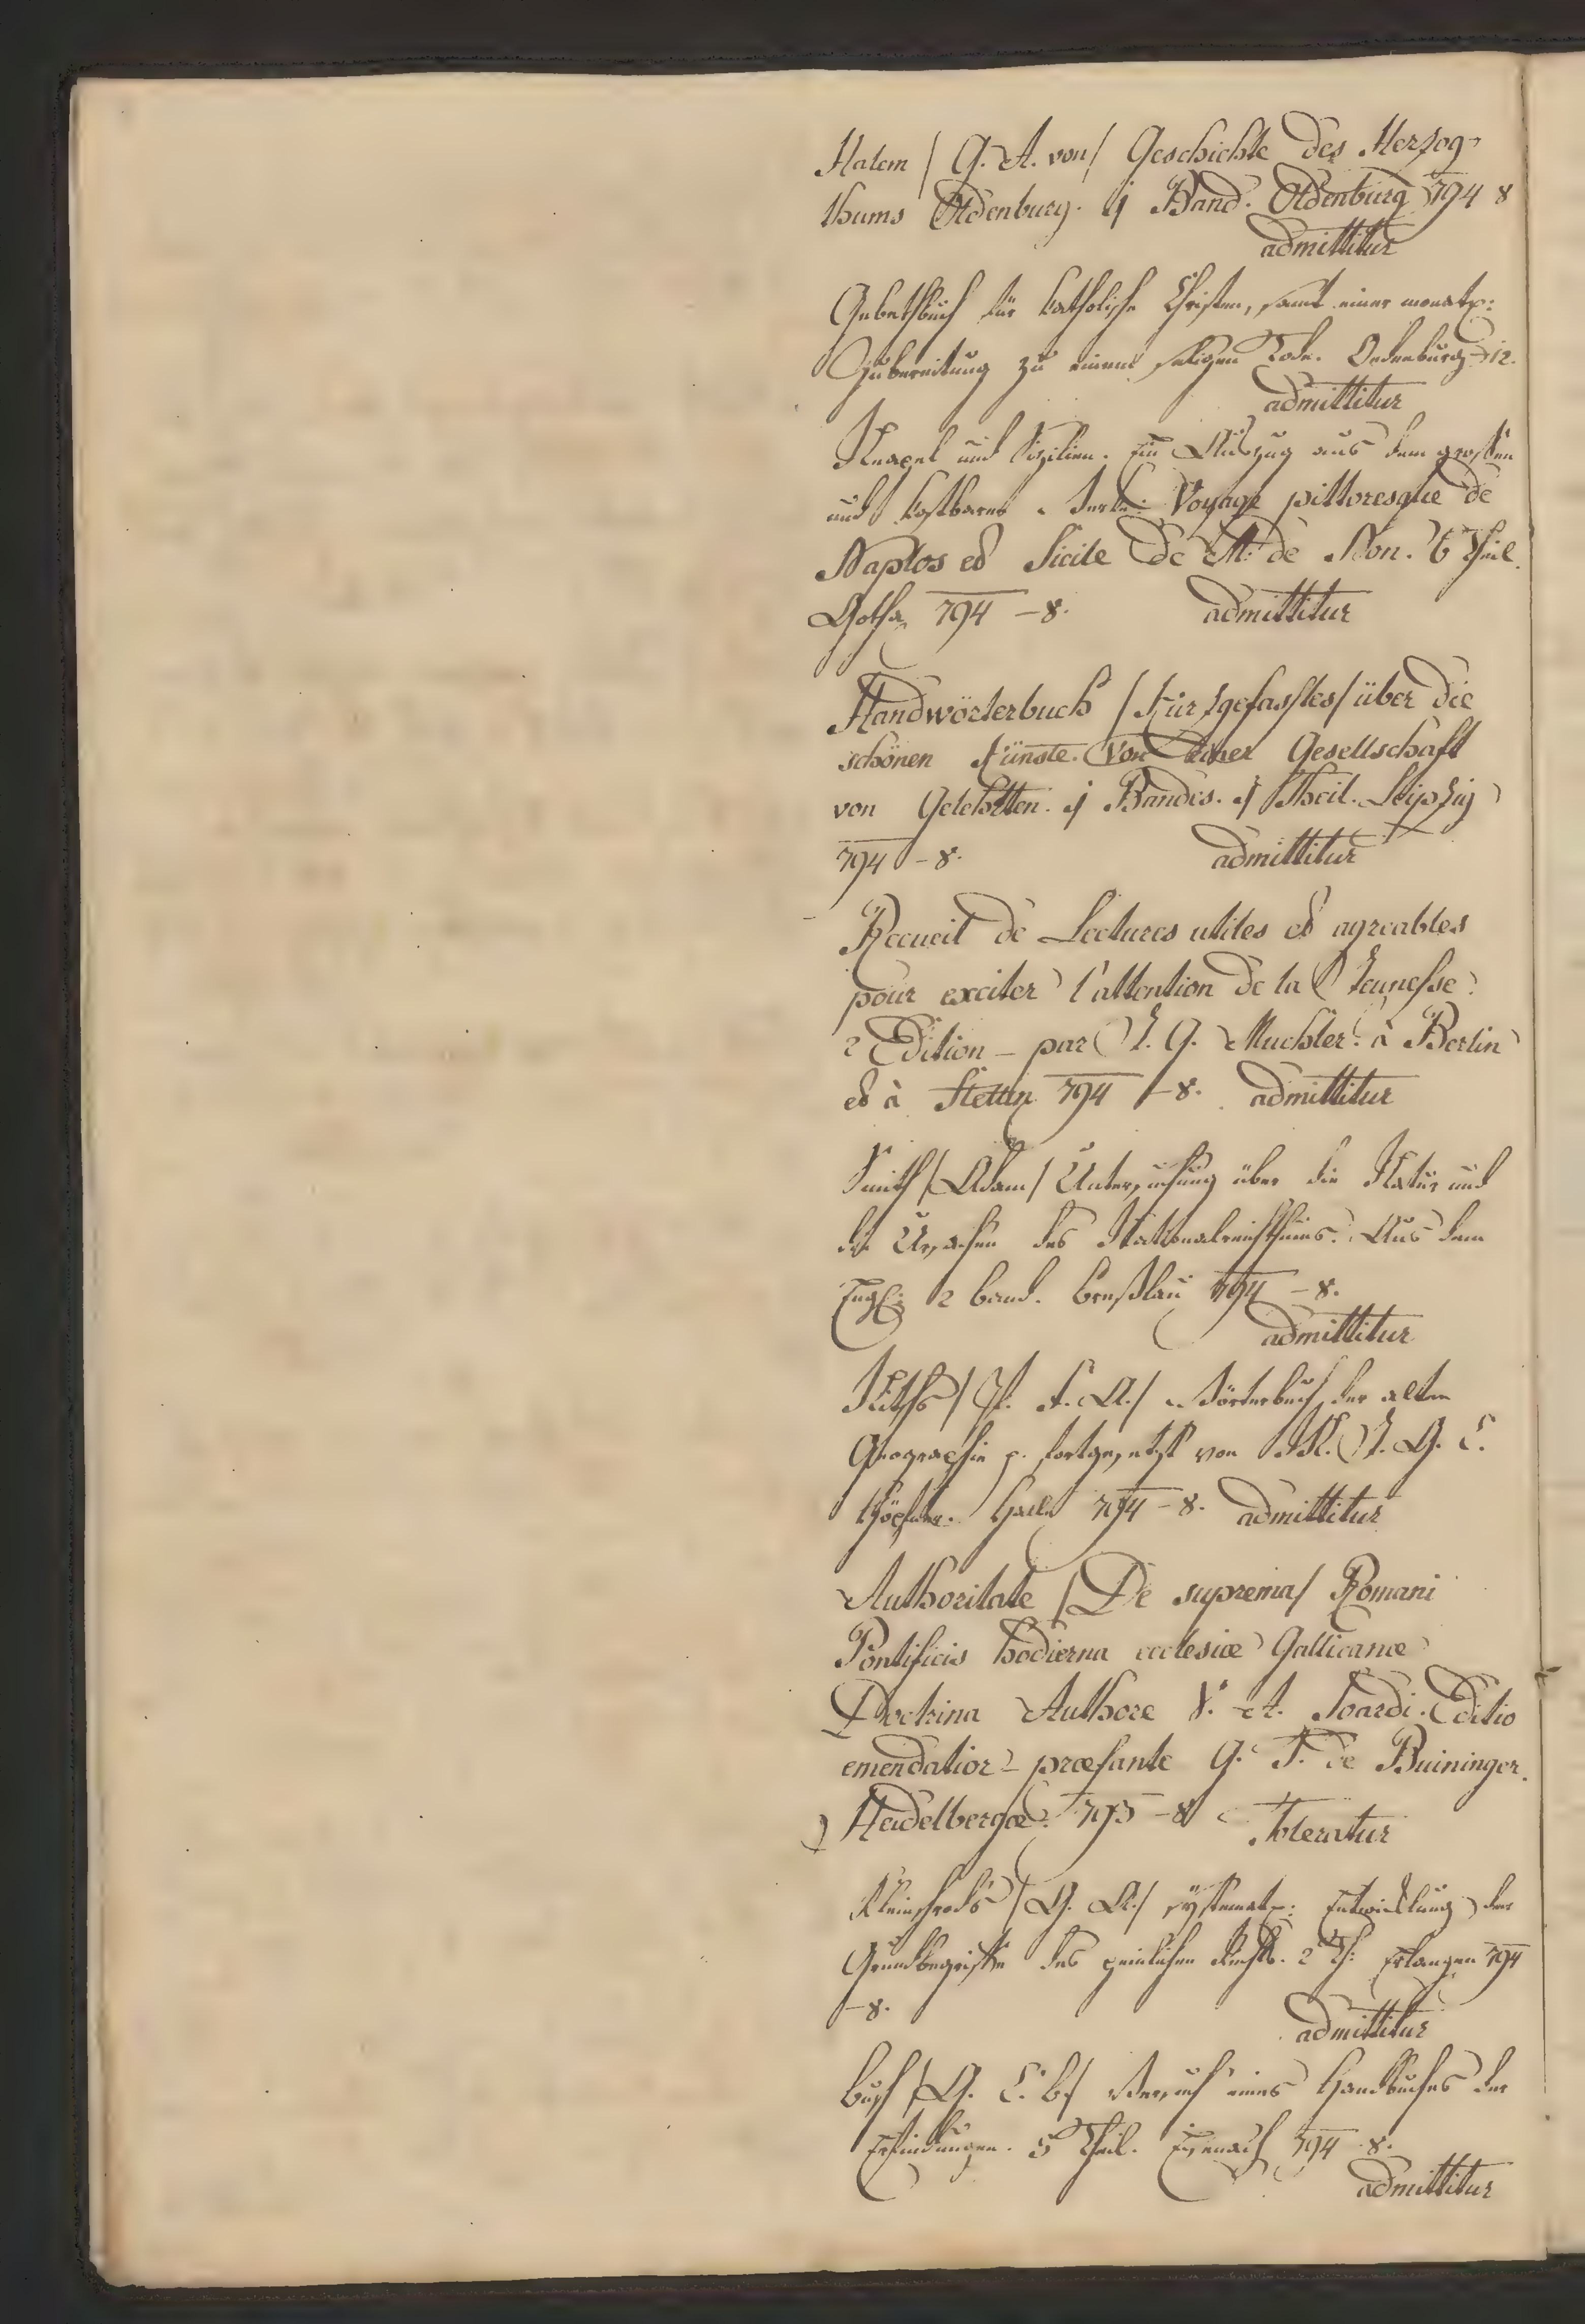 Halem / G. A. von / Geschichte des Herzog-
thums Oldenburg. 1 Band. Oldenburg 794 8
admittitur
Gebethbuch für katholische Christen, samt einer monatl:
Zubereitung zu einem seligen Tode. Oedenburg 12.
admittitur
Neapel und Sizilien. Ein Auszug aus dem großen
und kostbaren Werke: Voyage pittoresque de
Naples et Sicile de M. de Non. 6 Theil.
Gotha 794 – 8. admittitur
Handwörterbuch / Kurzgefasstes / über die
schönen Künste. Von einer Gesellschaft
von Gelehrten. 1 Bandes. 1 Theil. Leipzig
794 – 8. admittitur
Recueil de Lectures utiles et agreables
pour exciter l'attention de la Jeunesse.
2 Edition – par J. G. Muchler. à Berlin
et à Stettin 794 – 8. admittitur
Smith / Adam / Untersuchung über die Natur und
die Ursachen des Nationalreichthums. Aus dem
Engl: 2 Band. Breßlau 794 – 8.
admittitur
/ A. / Wörterbuch der alten
Geographie p. fortgesetzt von M. J. G. C.
Höpfner. Halle 794 – 8. admittitur
Authoritate / De suprema / Romani
Pontificis hodierna ecclesiæ Gallicanæ
Doctrina Authore V. A. Soardi. Editio
emendatior præfante G. T. de Buininger.
Heidelbergæ. 793 – 8 Toleratur
Kleinschrods / G. A. / systemat: Entwicklung der
Grundbegriffe des peinlichen Rechts. 2 Th: Erlangen 794
– 8. admittitur
Busch / G. C. B. / Versuch eines Handbuches der
Erfindungen. 5 Theil. Eisenach 794 8.
admittitur